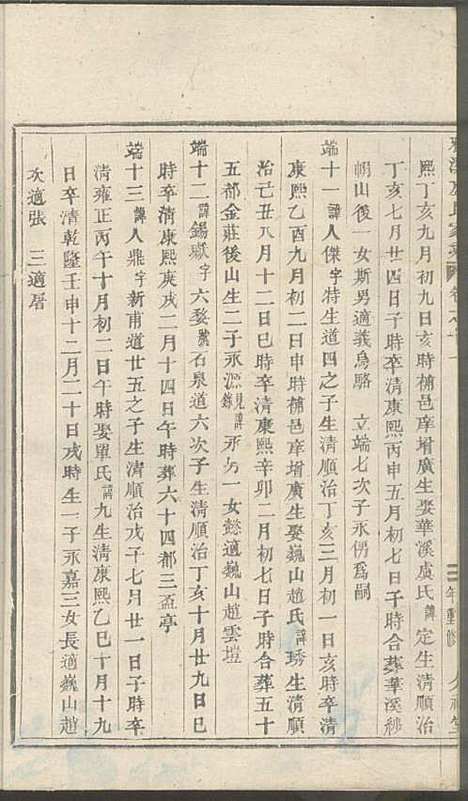 熙丁亥九月初九日亥時補邑庠增廣生娶華溪虞氏諱定生清順治
丁亥七月廿四日子時卒清康熙丙申五月初七日子時合葬華溪紗
帽山後一女斯男適義烏駱 立端七次子永侢為嗣
端十一諱人傑字特生道四之子生清順治丁亥三月初一日亥時卒清
康熙乙酉九月初二日申時補邑庠增廣生娶巍山趙氏諱琇生清順
治己丑八月十二日巳時卒清康熙辛卯二月初七日子時合葬五十
五都金莊後山生二子永源見諱錄永占一女懿適巍山趙雲塏
端十二諱錫嶽字六婺號石泉道六次子生清順治丁亥十月廿九日巳
時卒清康熙庚戌二月十四日午時葬六十四都三盃亭
端十三諱人鼎字新甫道廿五之子生清順治戊子七月廿一日子時卒
清雍正丙午十月初二日午時娶單氏諱九生清康熙乙巳十月十九
日卒清乾隆壬申十二月二十日戌時生一子永嘉三女長適巍山趙
次適張 三適厝